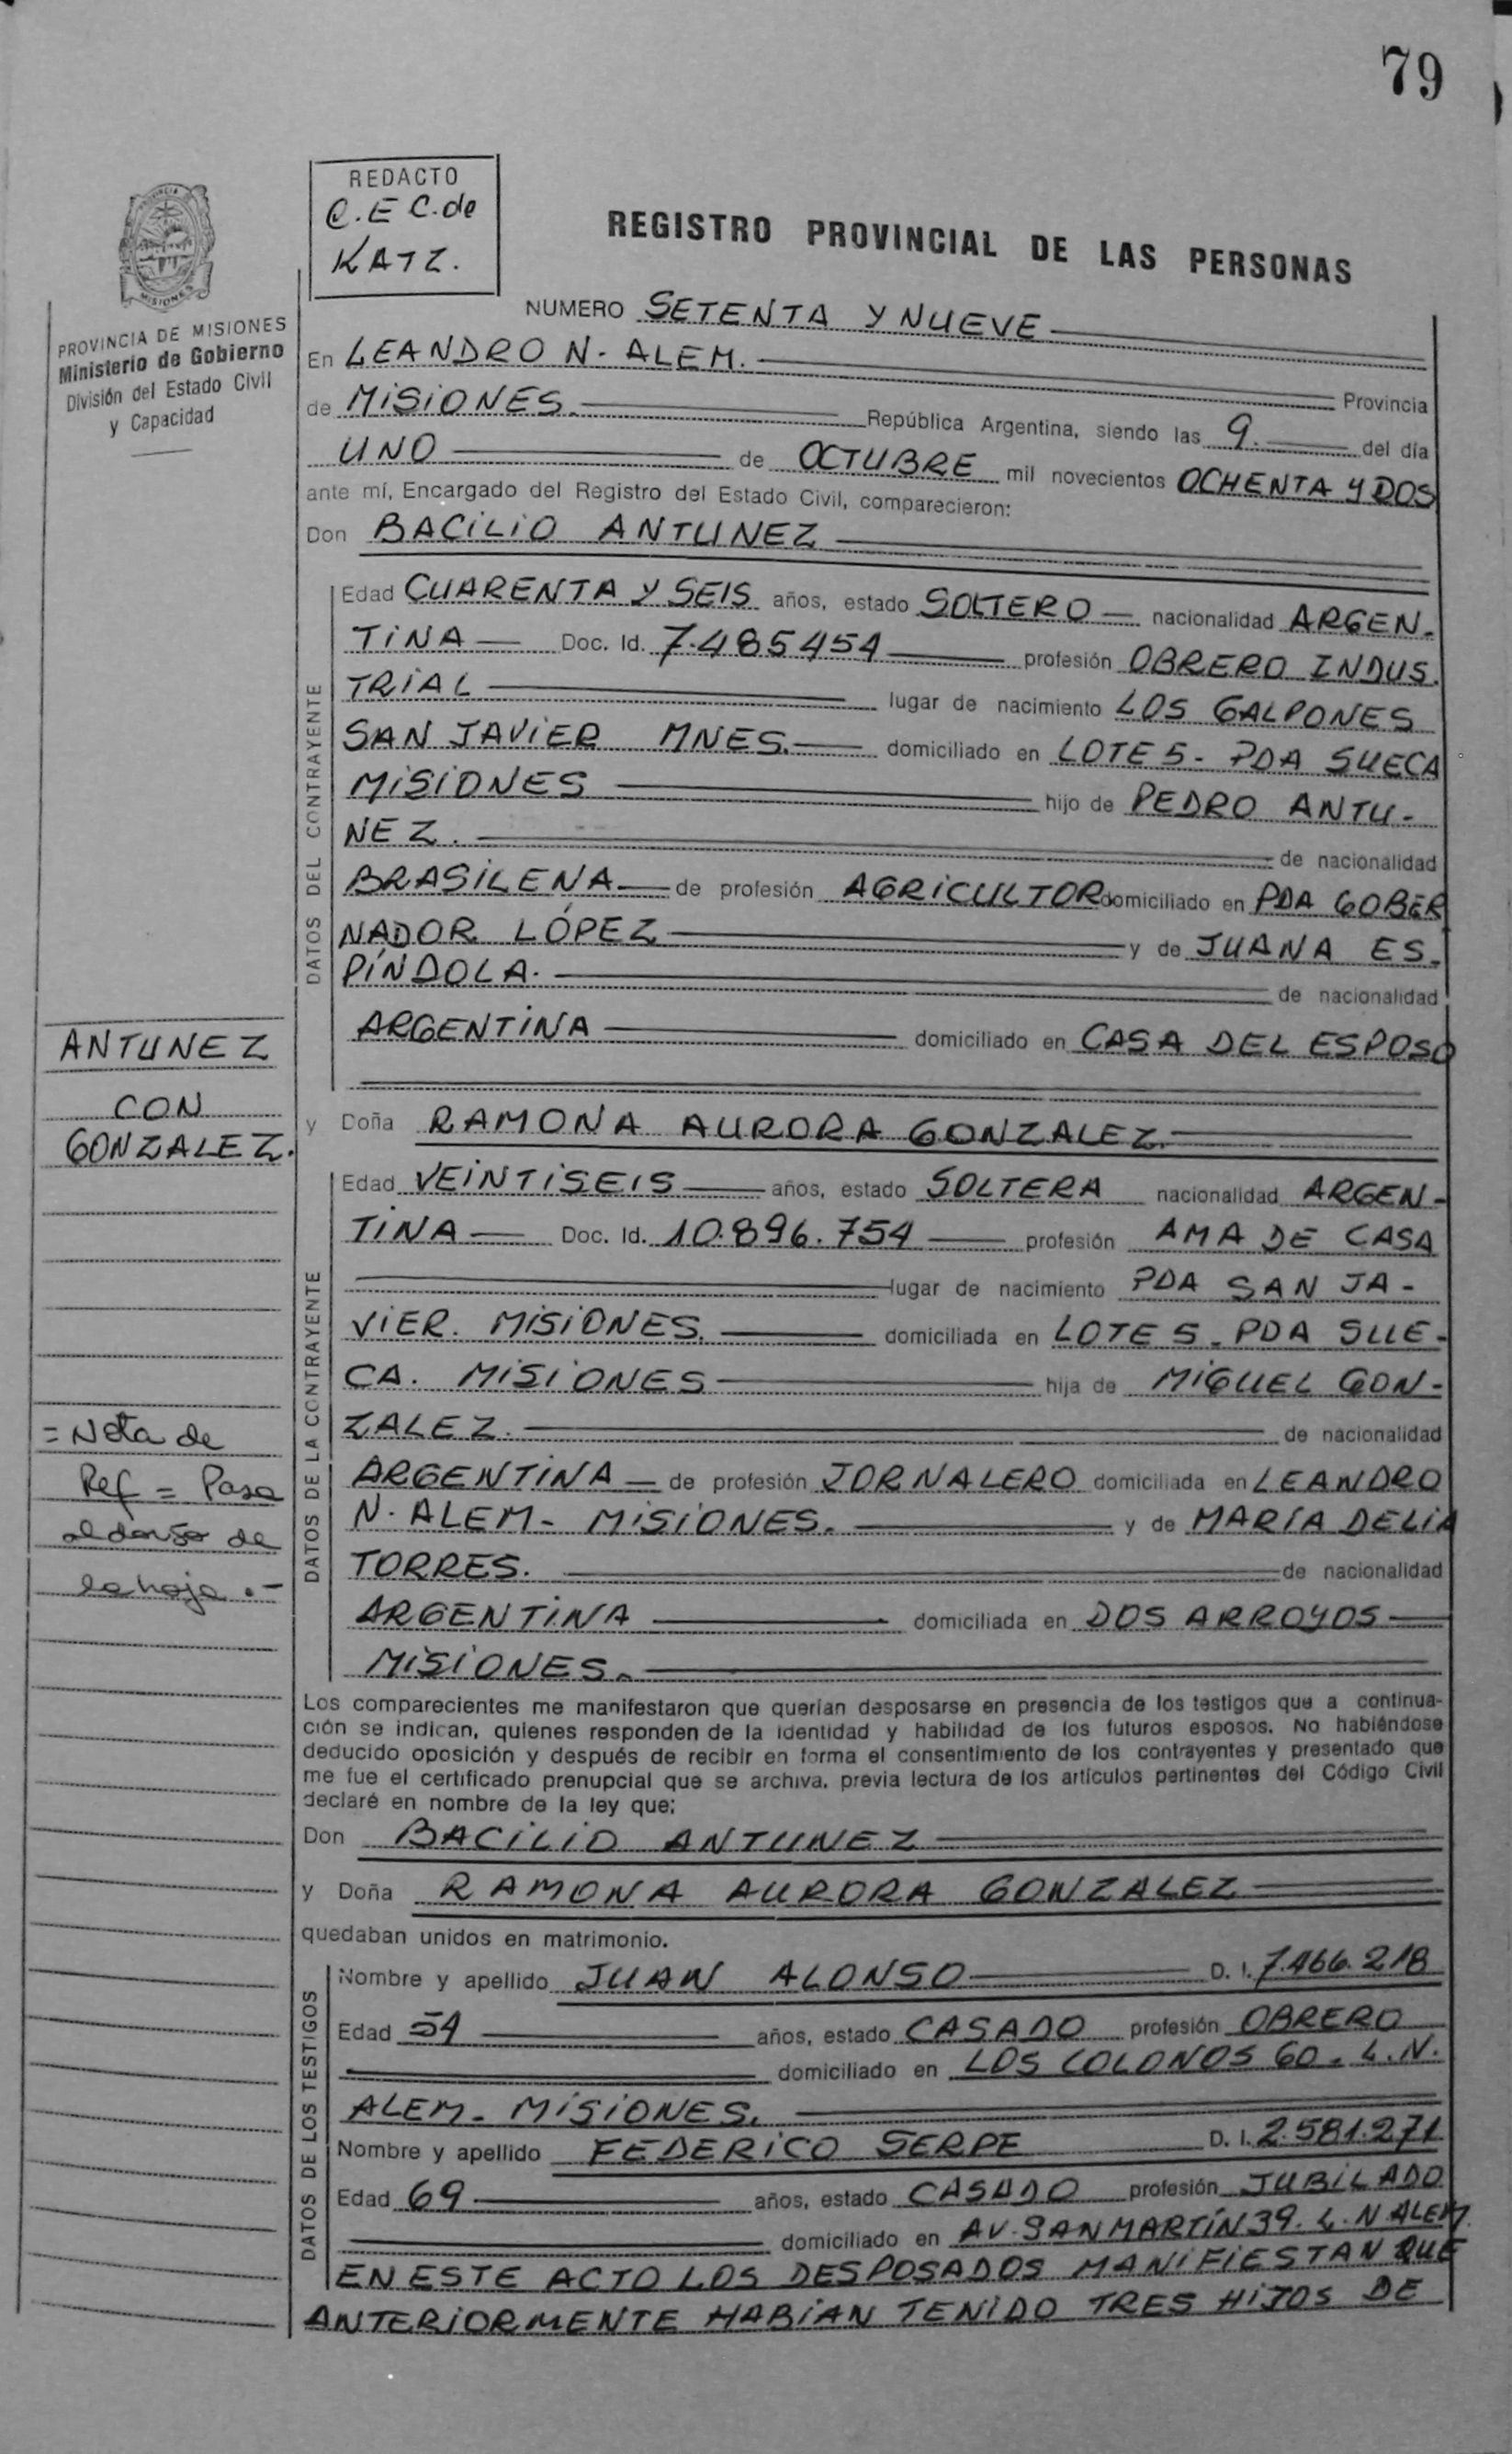 79
REDACTO
C.E C. de
KATZ.
REGISTRO PROVINCIAL DE LAS PERSONAS
PROVINCIA
MISIONES
PROVINCIA DE MISIONES
Ministerio de Gobierno
División del Estado Civil
y Capacidad
NUMERO SETENTA Y NUEVE
En LEANDRO N. ALEM.
Provincia
de MISIONES. República Argentina, siendo las 9. del día
UNO de OCTUBRE mil novecientos OCHENTA Y DOS
ante mí, Encargado del Registro del Estado Civil, comparecieron:
Don BACILIO ANTUNEZ
DATOS DEL CONTRAYENTE
Edad CUARENTA Y SEIS años, estado SOLTERO nacionalidad ARGEN-
TINA Doc. Id. 7.485454 profesión OBRERO INDUS.
TRIAL lugar de nacimiento LOS GALPONES
SAN JAVIER MNES. domiciliado en LOTE 5 - PDA SUECA
MISIONES hijo de PEDRO ANTU-
NEZ. de nacionalidad
BRASILENA de profesión AGRICULTOR domiciliado en PDA GOBER
NADOR LÓPEZ y de JUANA ES-
PÍNDOLA. de nacionalidad
ARGENTINA domiciliado en CASA DEL ESPOSO
ANTUNEZ
CON
GONZALEZ.
y Doña RAMONA AURORA GONZALEZ.
DATOS DE LA CONTRAYENTE
Edad VEINTISEIS años, estado SOLTERA nacionalidad ARGEN-
TINA Doc. Id. 10.896.754 profesión AMA DE CASA
lugar de nacimiento PDA SAN JA-
VIER. MISIONES. domiciliada en LOTE 5 - PDA SUE-
CA. MISIONES hija de MIGUEL GON-
ZALEZ. de nacionalidad
ARGENTINA de profesión JORNALERO domiciliada en LEANDRO
N. ALEM - MISIONES. y de MARÍA DELIA
TORRES. de nacionalidad
ARGENTINA domiciliada en DOS ARROYOS
MISIONES.
= Nota de
Ref = Pasa
al dorso de
la hoja .-
Los comparecientes me manifestaron que querían desposarse en presencia de los testigos que a continua-
ción se indican, quienes responden de la identidad y habilidad de los futuros esposos. No habiéndose
deducido oposición y después de recibir en forma el consentimiento de los contrayentes y presentado que
me fue el certificado prenupcial que se archiva, previa lectura de los artículos pertinentes del Código Civil
declaré en nombre de la ley que:
Don BACILIO ANTUNEZ
y Doña RAMONA AURORA GONZALEZ
quedaban unidos en matrimonio.
DATOS DE LOS TESTIGOS
Nombre y apellido JUAN ALONSO D. I. 7.466.218
Edad 54 años, estado CASADO profesión OBRERO
domiciliado en LOS COLONOS 60 - L.N.
ALEM - MISIONES.
Nombre y apellido FEDERICO SERPE D. I. 2.581.271
Edad 69 años, estado CASADO profesión JUBILADO
domiciliado en AV. SAN MARTÍN 39. L. N ALEM.
EN ESTE ACTO LOS DESPOSADOS MANIFIESTAN QUE
ANTERIORMENTE HABIAN TENIDO TRES HIJOS DE